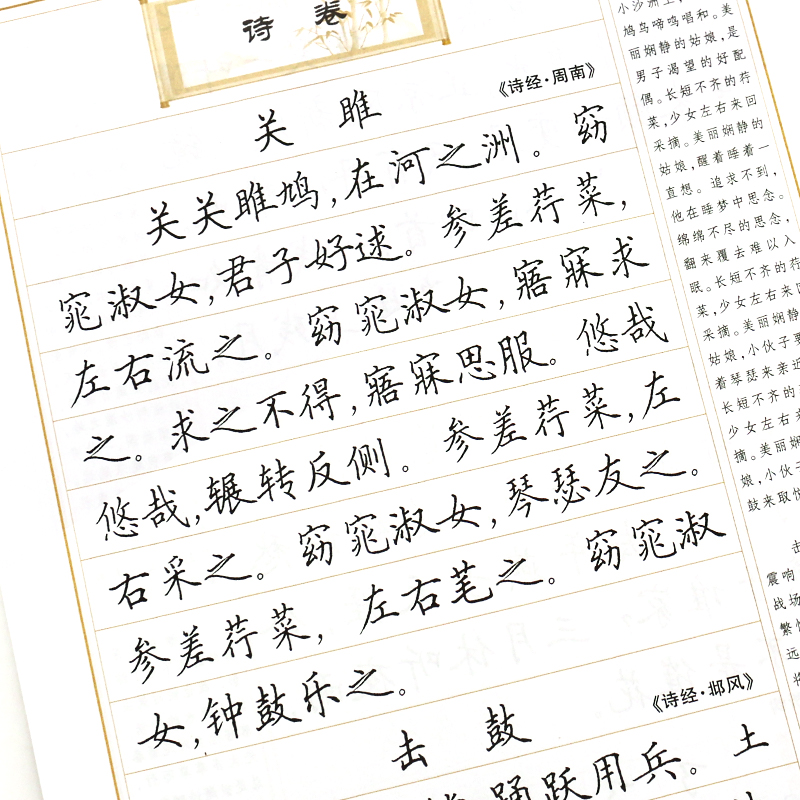 诗卷
《诗经·周南》
关雎
关关雎鸠,在河之洲。窈
窕淑女,君子好逑。参差荇菜,
左右流之。窈窕淑女,寤寐求
之。求之不得,寤寐思服。悠哉
悠哉,辗转反侧。参差荇菜,左
右采之。窈窕淑女,琴瑟友之。
参差荇菜,左右芼之。窈窕淑
女,钟鼓乐之。
《诗经·邶风》
击鼓
踊跃用兵。土
小沙洲上,
鸠鸟啼鸣唱和。美
丽娴静的姑娘,是
男子渴望的好配
偶。长短不齐的荇
菜,少女左右来回
采摘。美丽娴静的
姑娘,醒着睡着一
直想。追求不到,
他在睡梦中思念。
绵绵不尽的思念,
翻来覆去难以入
眠。长短不齐的荇
菜,少女左右来回
采摘。美丽娴静
姑娘,小伙子要
着琴瑟来亲近
长短不齐的
少女左右来
摘。美丽娴
娘,小伙子
鼓来取悦
击
震响
战场
繁忙
远
将